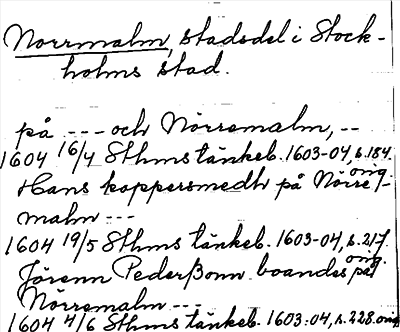 Norrmalm, stadsdel i Stock-
holms stad.
på --- och Nörremalm, --
1604 16/4 Sthms tänkeb. 1603-04, s. 184. orig.
Hans koppersmedh på Nörre/-
malm ---
1604 19/5 Sthms tänkeb. 1603-04, s. 217. orig.
Jörenn Pederßonn boandes på
Nörremalm ---
1604 4/6 Sthms tänkeb. 1603-04, s. 228. orig